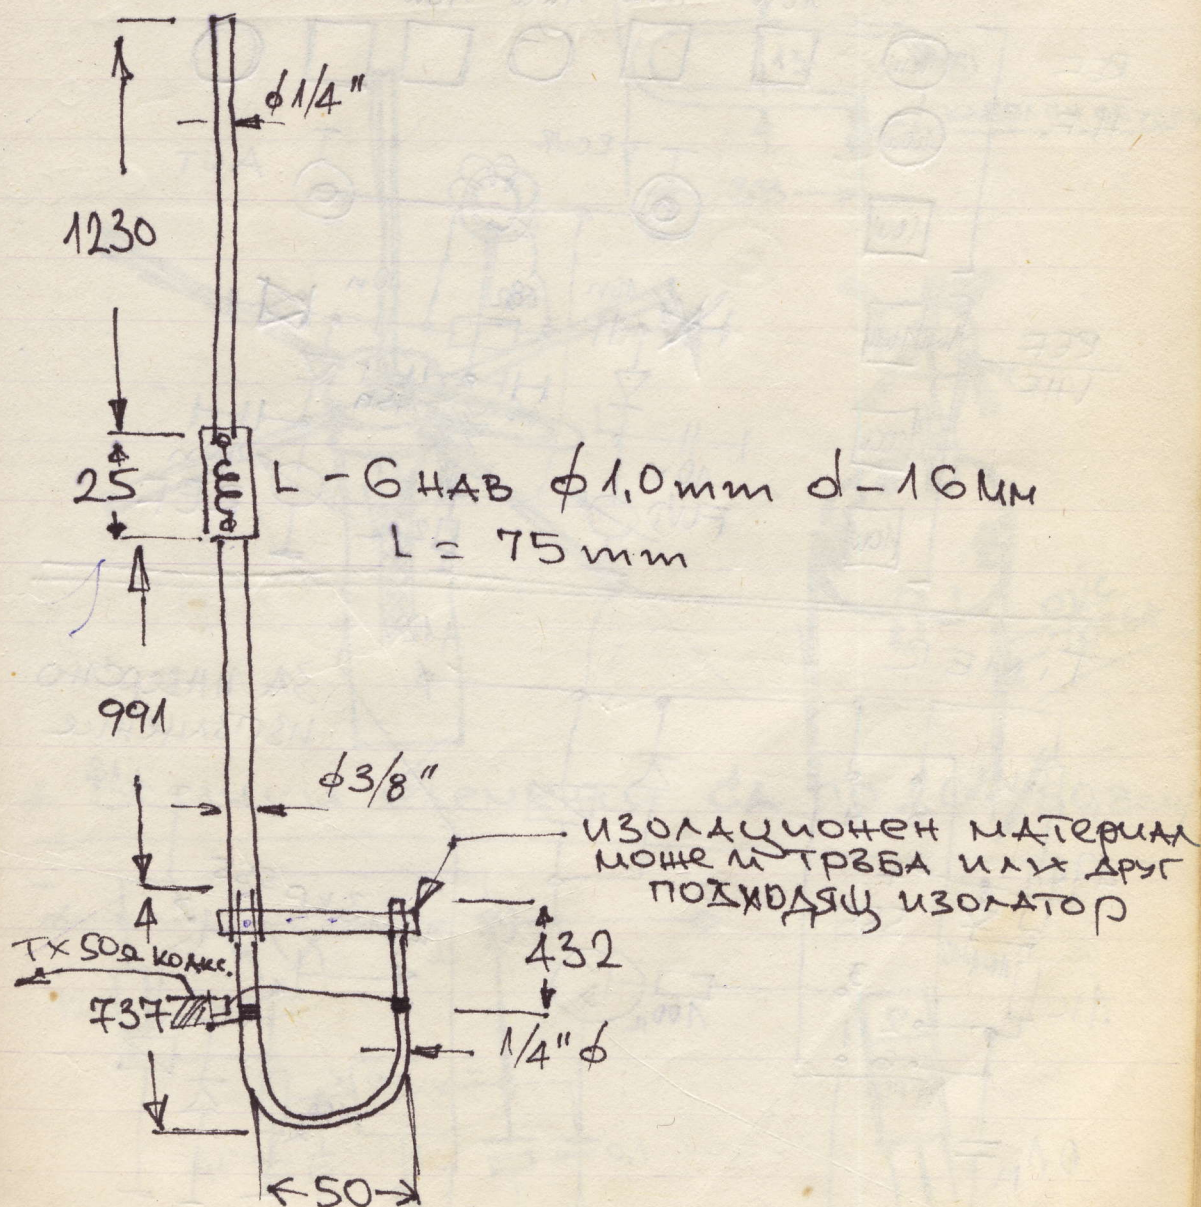 φ1/4"
1230
25
L - 6 НАВ φ1,0mm d-16мм
L = 75mm
991
φ3/8"
ИЗОЛАЦИОНЕН МАТЕРИАЛ
МОЖЕ И ТРЪБА ИЛИ ДРУГ
ПОДХОДЯЩ ИЗОЛАТОР
432
TX 50Ω КОАКС.
737
1/4"φ
50